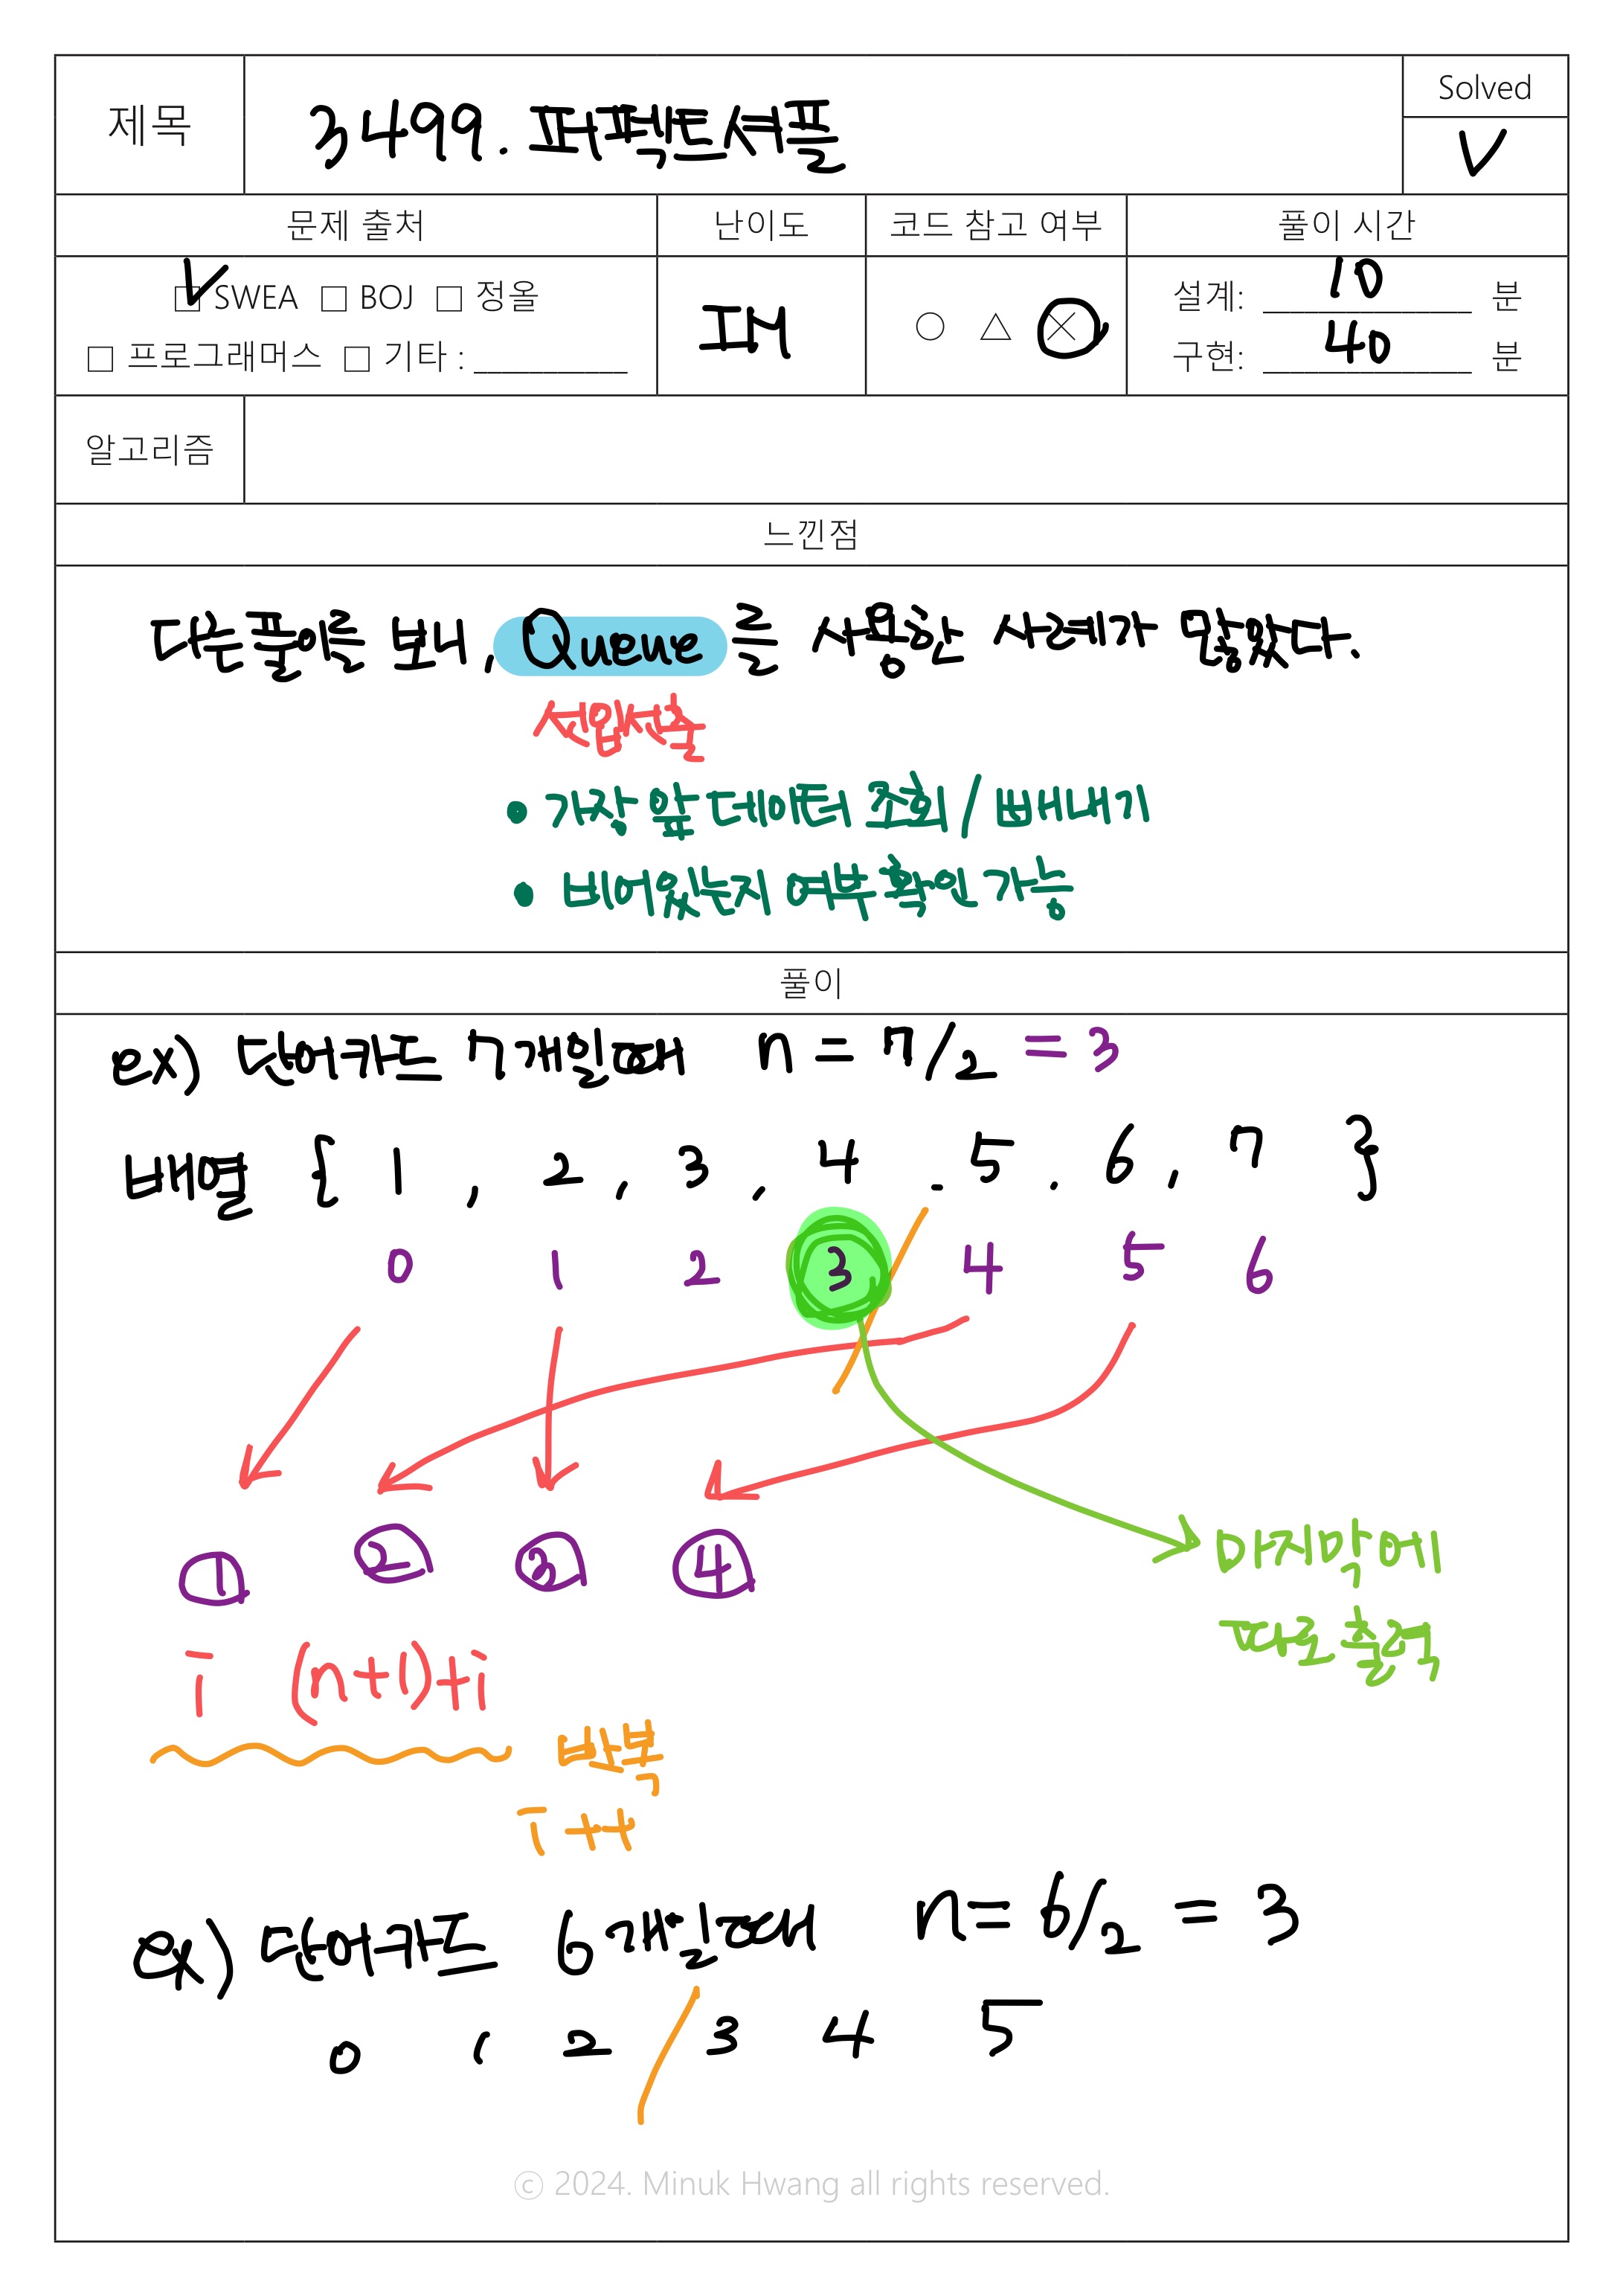 제목
3499. 퍼펙트 셔플
Solved
V
문제 출처
난이도
코드 참고 여부
풀이 시간
☑ SWEA □ BOJ □ 정올
□ 프로그래머스 □ 기타 : __________
IM
○ △ ⓧ
설계: 10 분
구현: 40 분
알고리즘
느낀점
다른풀이를 보니, Queue를 사용한 사례가 많았다.
선입선출
• 가장 앞 데이터 조회 / 빼내기
• 비어있는지 여부 확인 가능
풀이
ex) 단어카드 7개일때 n = 7/2 = 3
배열 { 1 , 2 , 3 , 4 . 5 . 6 , 7 }
0 1 2 3 4 5 6
① ② ③ ④
마지막에
따로 출력
i (n+1)+i
반복
i ++
ex) 단어카드 6개일때 n = 6/2 = 3
0 1 2 / 3 4 5
ⓒ 2024. Minuk Hwang all rights reserved.